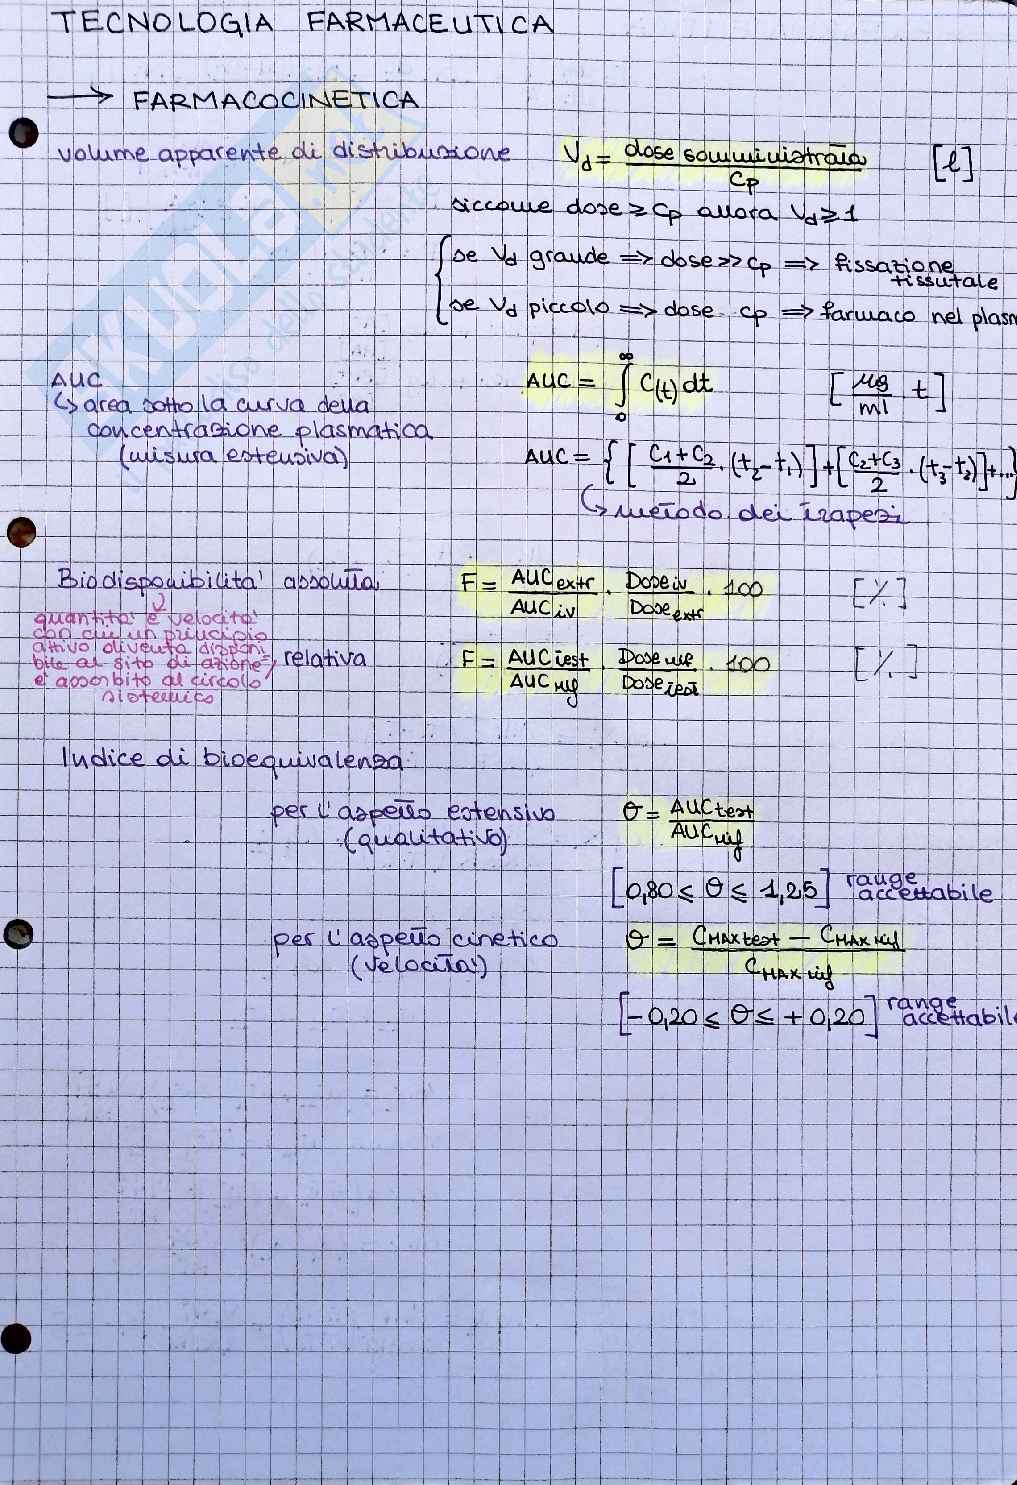 TECNOLOGIA FARMACEUTICA
→ FARMACOCINETICA
volume apparente di distribuzione Vd = dose somministrata / Cp [l]
siccome dose ≥ Cp allora Vd ≥ 1
{ se Vd grande => dose >> Cp => fissazione tissutale
se Vd piccolo => dose cp => farmaco nel plasm
AUC AUC = ∫₀^∞ C(t) dt [μg/ml t]
↳ area sotto la curva della
concentrazione plasmatica
(misura estensiva) AUC = { [ C1+C2 / 2 · (t2-t1) ] + [ C2+C3 / 2 · (t3-t2) ] + ...}
↳ metodo dei trapezi
Biodisponibilita' assoluta F = AUCextr / AUCiv · Doseiv / Doseextr · 100 [%]
quantita' e velocita'
con cui un principio
attivo diventa disponi
bile al sito di azione
e' assorbito al circolo
sistemico
relativa F = AUCtest / AUCrif · Doserif / Dosetest · 100 [%]
Indice di bioequivalenza
per l'aspetto estensivo θ = AUCtest / AUCrif
(qualitativo)
[0,80 ≤ θ ≤ 1,25] range accettabile
per l'aspetto cinetico θ = CMAXtest − CMAXrif / CMAXrif
(velocita')
[-0,20 ≤ θ ≤ +0,20] range accettabile
KUOLE.net